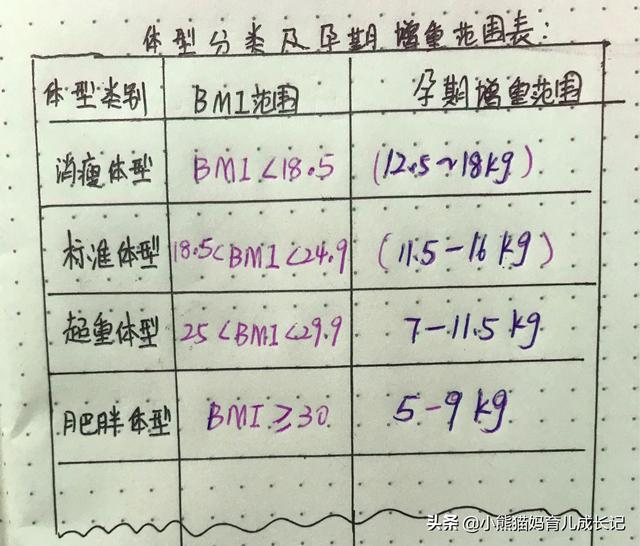 体型分类及孕期增重范围表：
体型类别 BMI范围 孕期增重范围
消瘦体型 BMI<18.5 (12.5~18kg)
标准体型 18.5<BMI<24.9 (11.5-16kg)
超重体型 25<BMI<29.9 7-11.5kg
肥胖体型 BMI≥30 5-9kg
头条@小熊猫妈育儿成长记